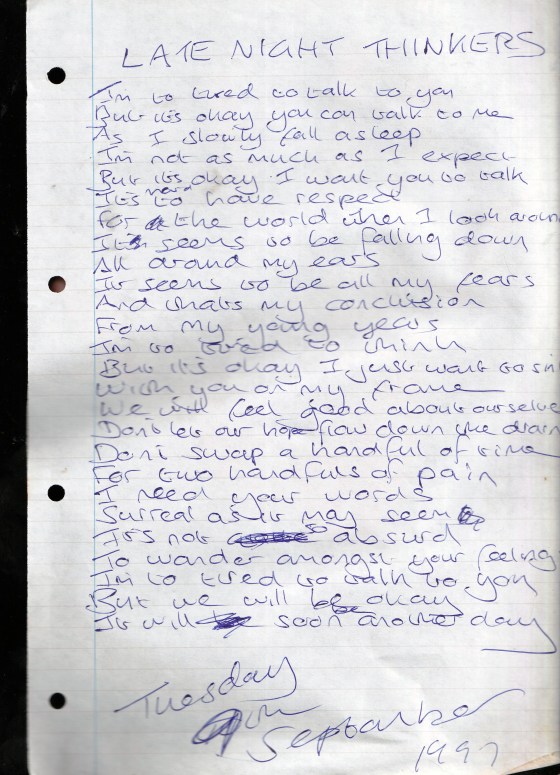 LATE NIGHT THINKERS
I'm to tired to talk to you
But it's okay you can talk to me
As I slowly fall asleep
I'm not as much as I expect
But it's okay I want you to talk
It's hard to have respect
For the world when I look aroun
It seems to be falling down
All around my ears
It seems to be all my fears
And whats my conclusion
From my young years
I'm to tired to think
But it's okay I just want to sin
With you on my frame
We will feel good about ourselve
Don't let our hope flow down the drain
Don't swap a handful of time
For two handfuls of pain
I need your words
Surreal as it may seem
It's not so absurd
To wander amongst your feeling
I'm to tired to talk to you
But we will be okay
It will soon another day
Tuesday
9th
September
1997